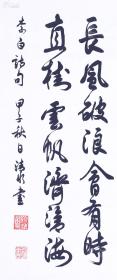 長風破浪會有時
直掛雲帆濟滄海
李白詩句 甲子秋日 書